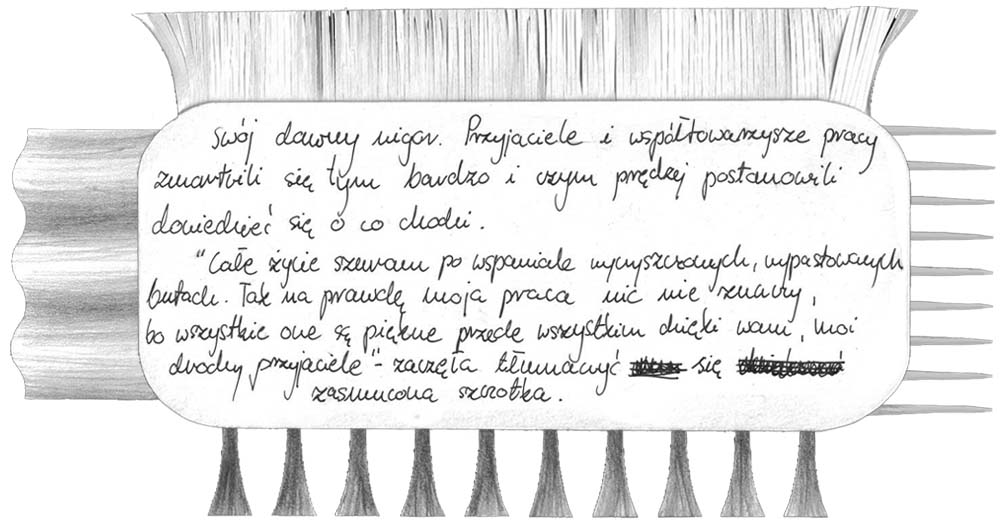 swój dawny wigor. Przyjaciele i współtowarzysze pracy
zmartwili się tym bardzo i czym prędzej postanowili
dowiedzieć się o co chodzi.
"Całe życie szuram po wspaniale wyczyszczonych, wypastowanych
butach. Tak na prawdę moja praca nic nie znaczy,
bo wszystkie one są piękne przede wszystkim dzięki wam, moi
drodzy przyjaciele" - zaczęła tłumaczyć się
zasmucona szczotka.